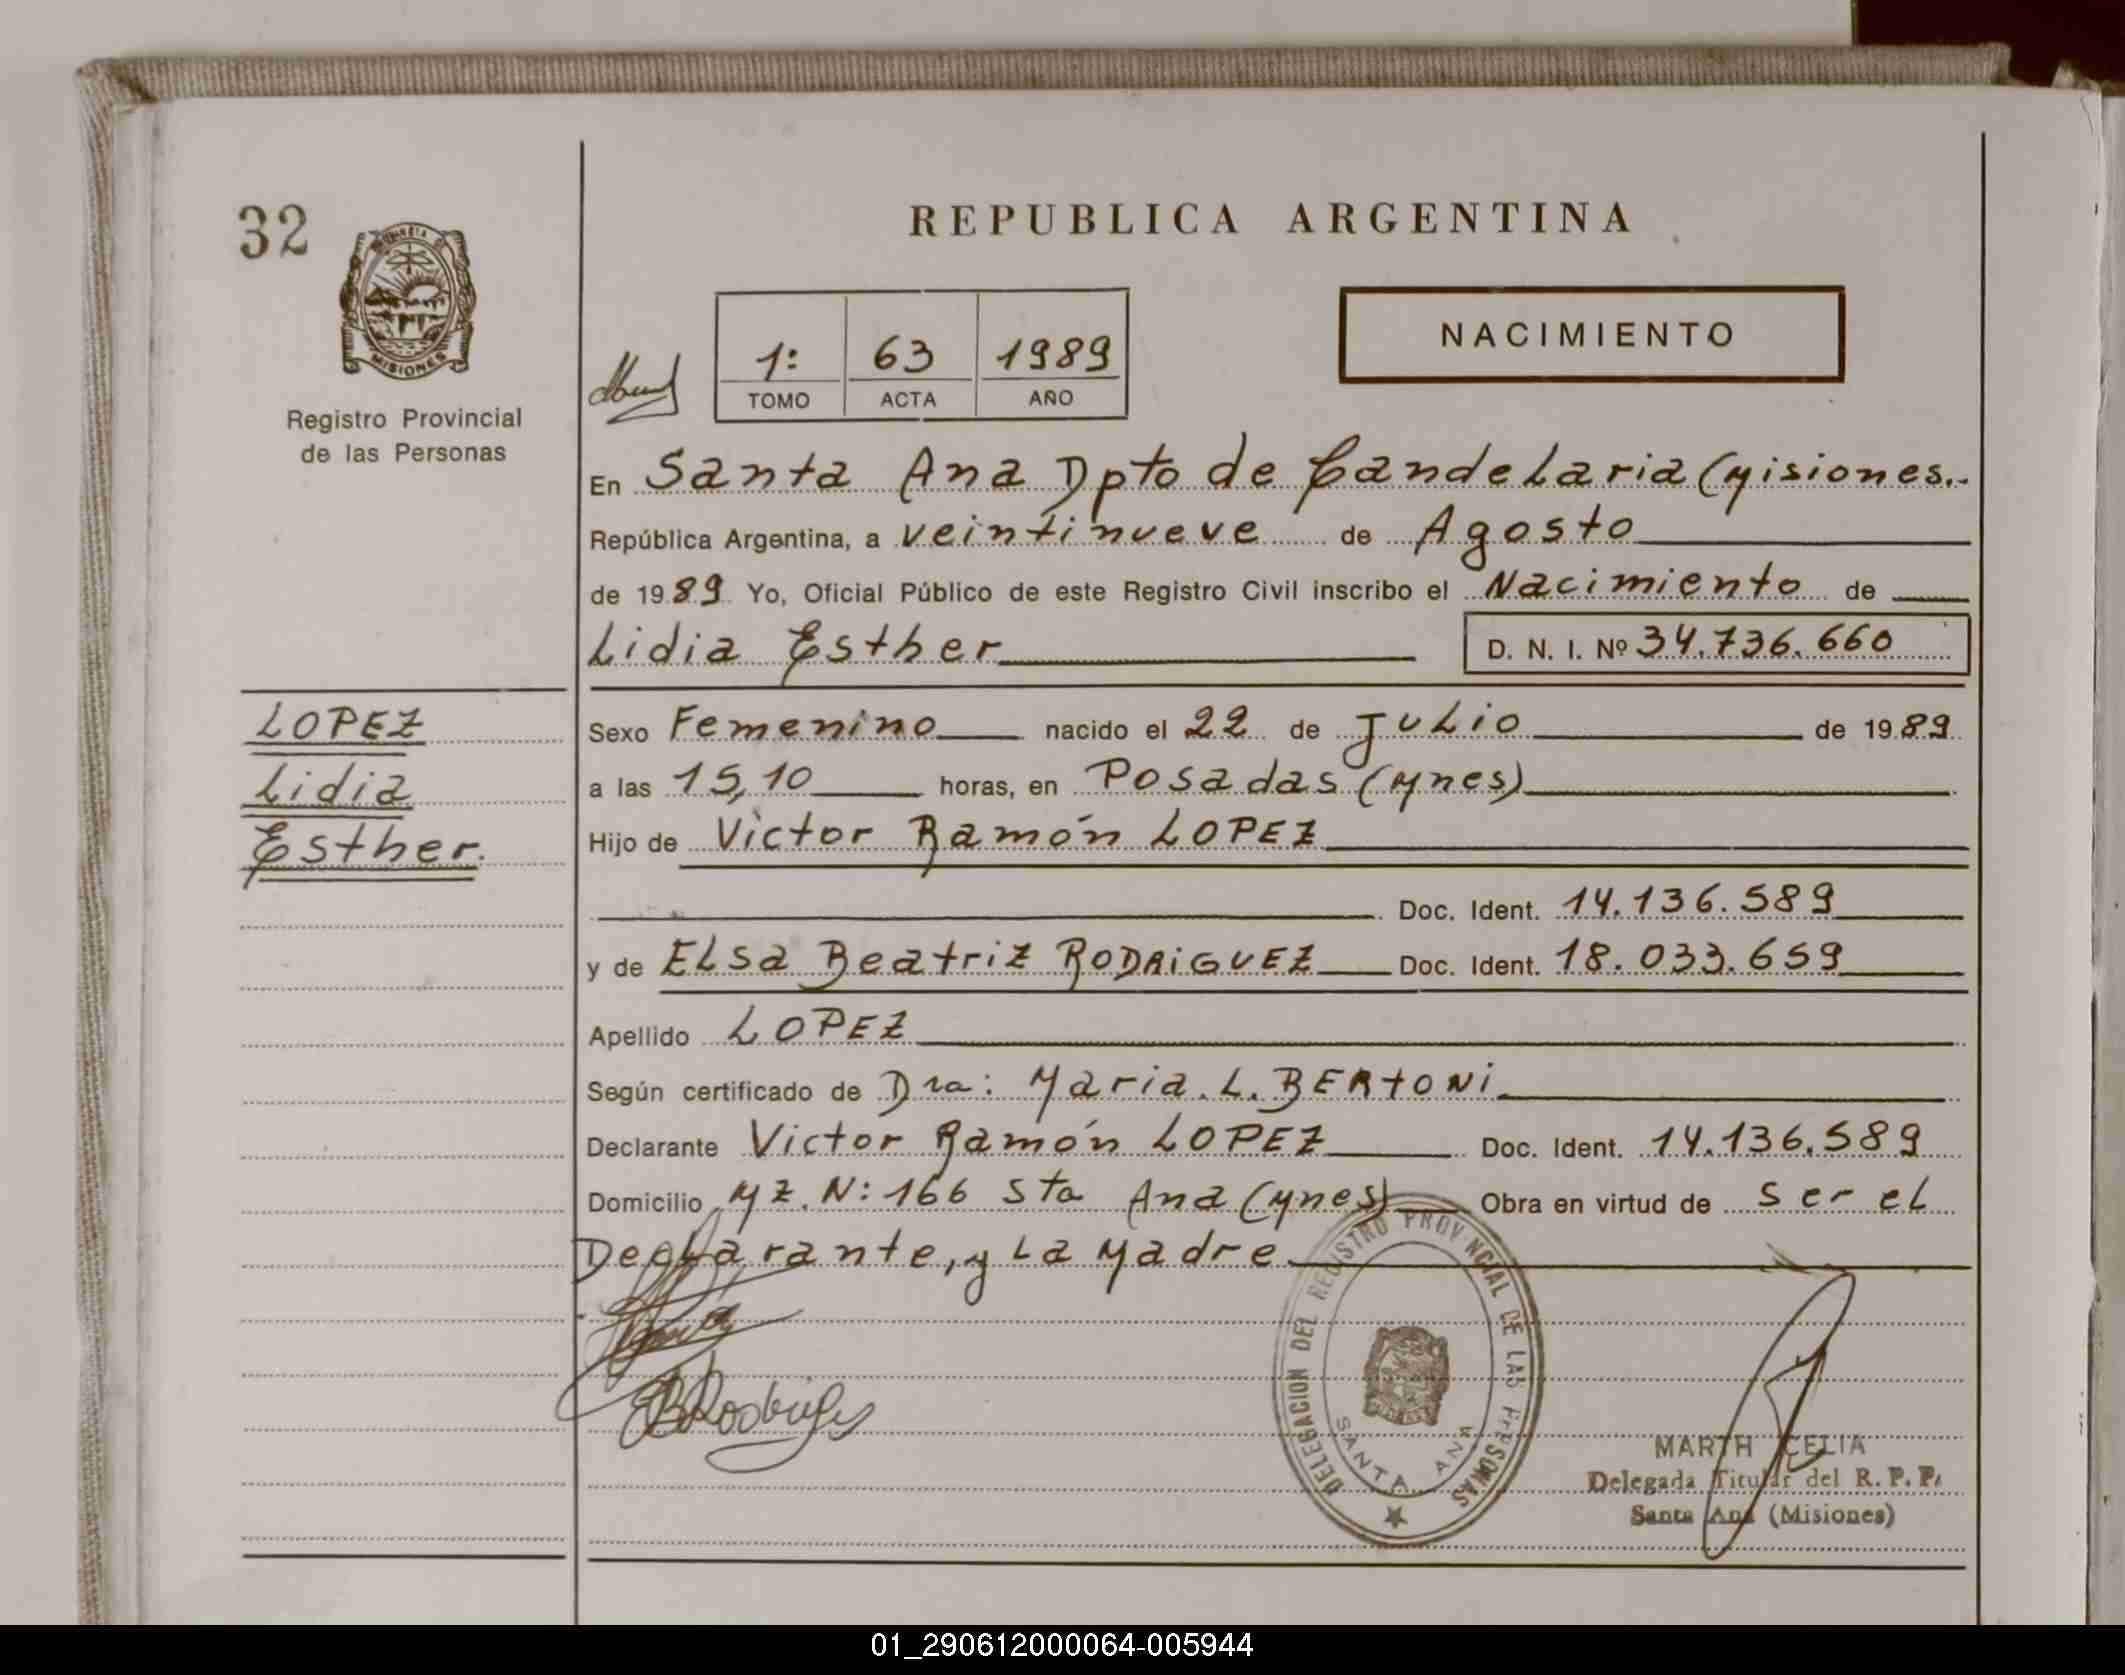 32
MISIONES
Registro Provincial
de las Personas
REPUBLICA ARGENTINA
NACIMIENTO
1: 63 1989
TOMO ACTA AÑO
En Santa Ana Dpto de Candelaria (Misiones..
República Argentina, a veintinueve de Agosto
de 1989 Yo, Oficial Público de este Registro Civil inscribo el Nacimiento de
Lidia Esther D. N. I. Nº 34.736.660
LOPEZ
Lidia
Esther.
Sexo Femenino nacido el 22 de Julio de 1989
a las 15,10 horas, en Posadas (Mnes)
Hijo de Victor Ramón LOPEZ
Doc. Ident. 14.136.589
y de ELsa Beatriz RODRiGUEZ Doc. Ident. 18.033.659
Apellido LOPEZ
Según certificado de Dra: Maria. L. BERtoNi
Declarante Victor Ramón LOPEZ Doc. Ident. 14.136.589
Domicilio MZ. N: 166 Sta Ana (Mnes) Obra en virtud de ser el
Declarante, y La Madre.
EBRodriguez
DELEGACION DEL REGISTRO PROVINCIAL DE LAS PERSONAS
SANTA ANA
MARTH CELIA
Delegada Titular del R. P. P.
Santa Ana (Misiones)
01_290612000064-005944